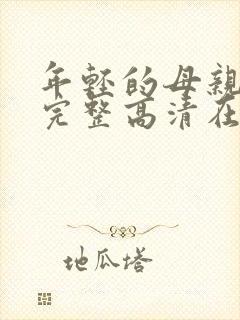 年轻的母亲
完整高清在
地瓜塔